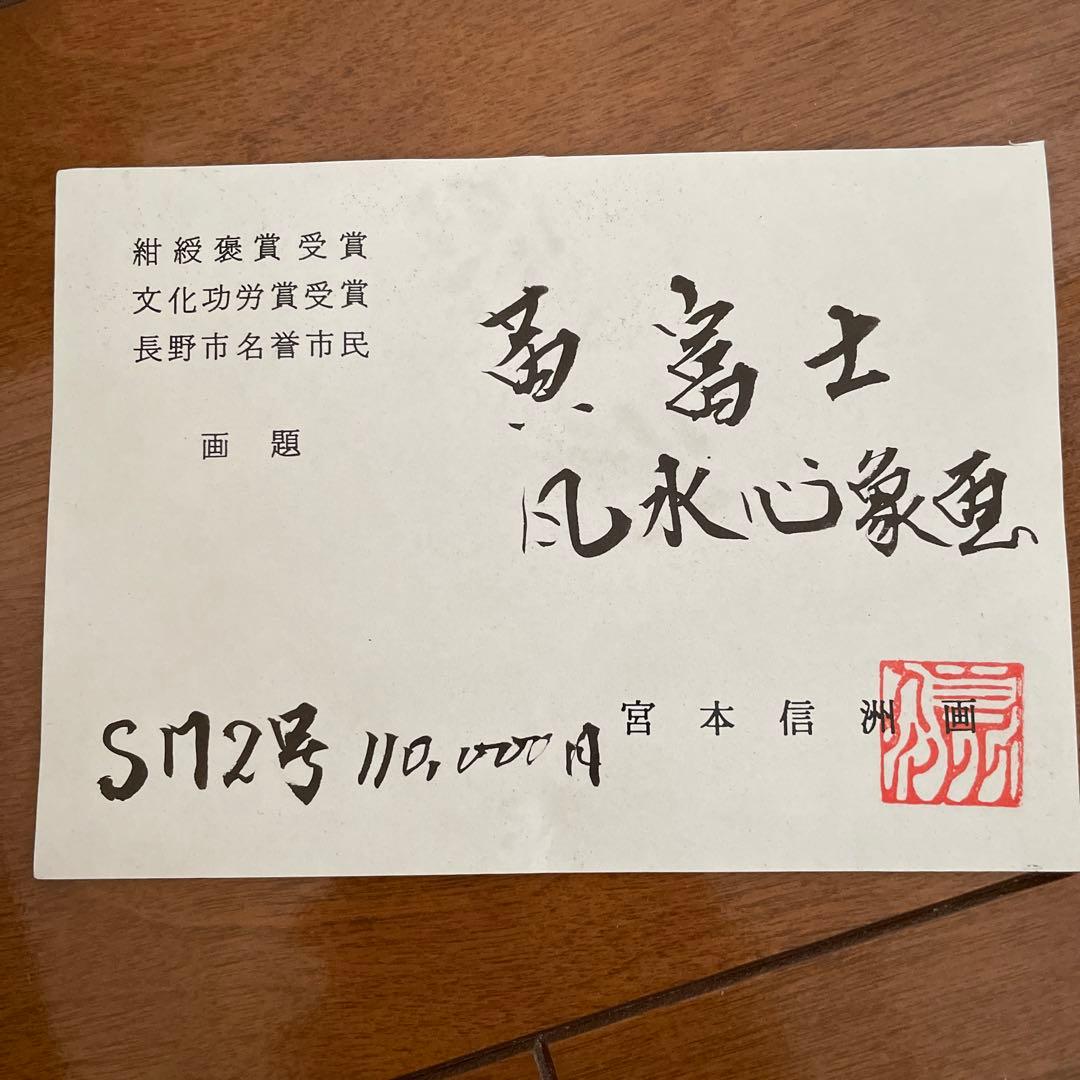 紺綬褒賞受賞
文化功労賞受賞
長野市名誉市民
画題
黄富士
風水心象画
SM2号 110,000円
宮本信洲画